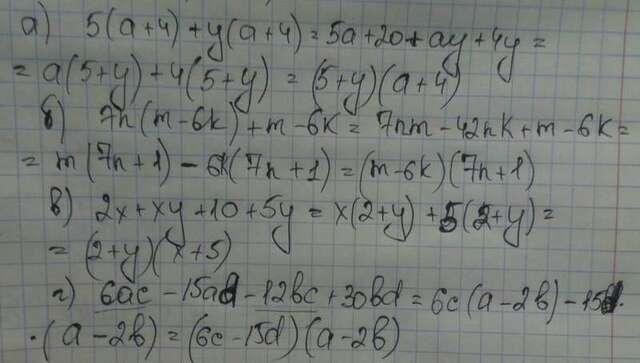 а) 5(a+4)+y(a+4)=5a+20+ay+4y=
=a(5+y)+4(5+y)=(5+y)(a+4)
б) 7n(m-6k)+m-6k=7nm-42nk+m-6k=
=m(7n+1)-6k(7n+1)=(m-6k)(7n+1)
в) 2x+xy+10+5y=x(2+y)+5(2+y)=
=(2+y)(x+5)
г) 6ac-15ad-12bc+30bd=6c(a-2b)-15d·
·(a-2b)=(6c-15d)(a-2b)